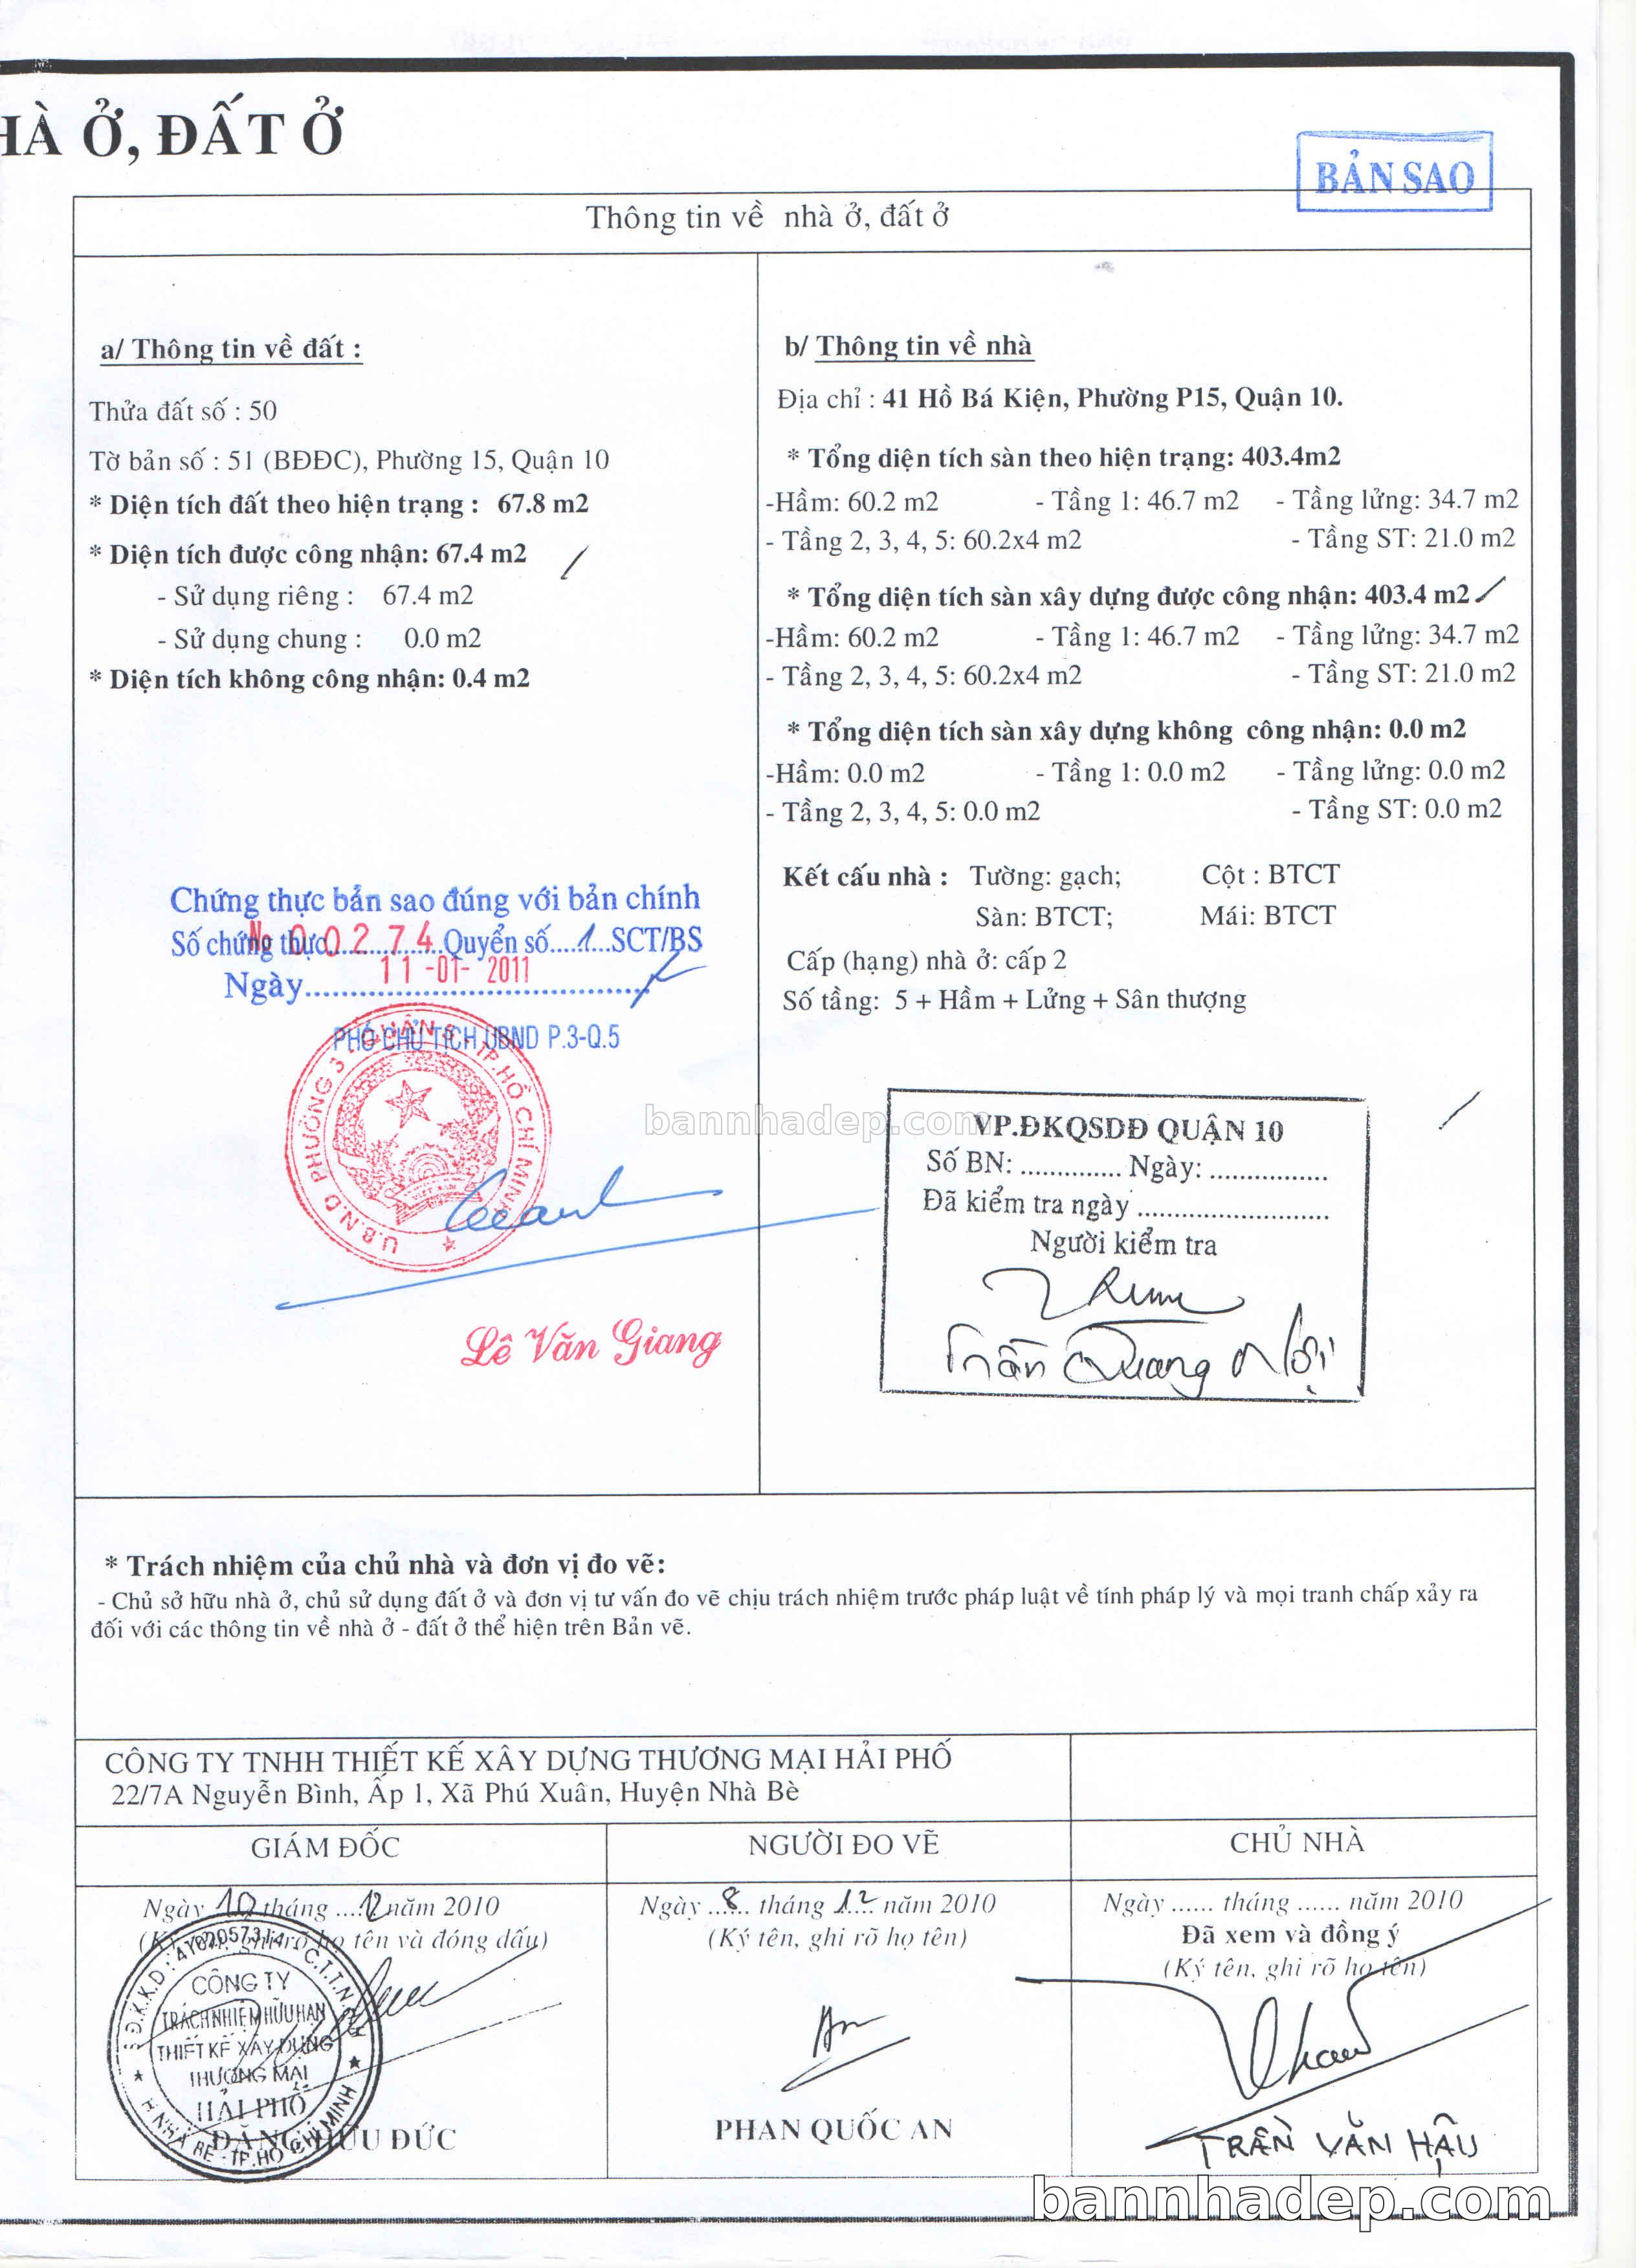 HÀ Ở, ĐẤT Ở
BẢN SAO
Thông tin về nhà ở, đất ở
a/ Thông tin về đất :
Thửa đất số : 50
Tờ bản số : 51 (BĐĐC), Phường 15, Quận 10
* Diện tích đất theo hiện trạng : 67.8 m2
* Diện tích được công nhận: 67.4 m2
- Sử dụng riêng : 67.4 m2
- Sử dụng chung : 0.0 m2
* Diện tích không công nhận: 0.4 m2
Chứng thực bản sao đúng với bản chính
Số chứng thực No 00274 Quyển số....1...SCT/BS
Ngày 11-01-2011
PHÓ CHỦ TỊCH UBND P.3-Q.5
U.B.N.D PHƯỜNG 3 - QUẬN 5 - TP.HỒ CHÍ MINH
VIỆT NAM
Lê Văn Giang
b/ Thông tin về nhà
Địa chỉ : 41 Hồ Bá Kiện, Phường P15, Quận 10.
* Tổng diện tích sàn theo hiện trạng: 403.4m2
-Hầm: 60.2 m2 - Tầng 1: 46.7 m2 - Tầng lửng: 34.7 m2
- Tầng 2, 3, 4, 5: 60.2x4 m2 - Tầng ST: 21.0 m2
* Tổng diện tích sàn xây dựng được công nhận: 403.4 m2
-Hầm: 60.2 m2 - Tầng 1: 46.7 m2 - Tầng lửng: 34.7 m2
- Tầng 2, 3, 4, 5: 60.2x4 m2 - Tầng ST: 21.0 m2
* Tổng diện tích sàn xây dựng không công nhận: 0.0 m2
-Hầm: 0.0 m2 - Tầng 1: 0.0 m2 - Tầng lửng: 0.0 m2
- Tầng 2, 3, 4, 5: 0.0 m2 - Tầng ST: 0.0 m2
Kết cấu nhà : Tường: gạch; Cột : BTCT
Sàn: BTCT; Mái: BTCT
Cấp (hạng) nhà ở: cấp 2
Số tầng: 5 + Hầm + Lửng + Sân thượng
bannhadep.com
VP.ĐKQSDĐ QUẬN 10
Số BN: .............. Ngày: ................
Đã kiểm tra ngày ..........................
Người kiểm tra
Trần Quang Nội
* Trách nhiệm của chủ nhà và đơn vị đo vẽ:
- Chủ sở hữu nhà ở, chủ sử dụng đất ở và đơn vị tư vấn đo vẽ chịu trách nhiệm trước pháp luật về tính pháp lý và mọi tranh chấp xảy ra
đối với các thông tin về nhà ở - đất ở thể hiện trên Bản vẽ.
CÔNG TY TNHH THIẾT KẾ XÂY DỰNG THƯƠNG MẠI HẢI PHỐ
22/7A Nguyễn Bình, Ấp 1, Xã Phú Xuân, Huyện Nhà Bè
GIÁM ĐỐC
Ngày 10 tháng ....12 năm 2010
(Ký tên, ghi rõ họ tên và đóng dấu)
CÔNG TY
TRÁCH NHIỆM HỮU HẠN
THIẾT KẾ XÂY DỰNG
THƯƠNG MẠI
HẢI PHỐ
H.NHÀ BÈ - TP.HỒ CHÍ MINH
ĐẶNG HỮU ĐỨC
NGƯỜI ĐO VẼ
Ngày ..8... tháng 12 năm 2010
(Ký tên, ghi rõ họ tên)
PHAN QUỐC AN
CHỦ NHÀ
Ngày ...... tháng ...... năm 2010
Đã xem và đồng ý
(Ký tên, ghi rõ họ tên)
TRẦN VĂN HẬU
bannhadep.com